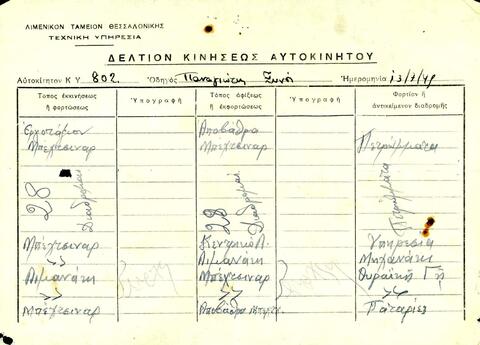 ΛΙΜΕΝΙΚΟΝ ΤΑΜΕΙΟΝ ΘΕΣΣΑΛΟΝΙΚΗΣ
ΤΕΧΝΙΚΗ ΥΠΗΡΕΣΙΑ
ΔΕΛΤΙΟΝ ΚΙΝΗΣΕΩΣ ΑΥΤΟΚΙΝΗΤΟΥ
Αὐτοκίτητον Κ Υ 802 Ὁδηγὸς Παναγιώτης Ἡμερομηνία 13/7/49
Τόπος ἐκκινήσεως ἢ φορτώσεως
Ὑπογραφὴ
Τόπος ἀφίξεως ἢ ἐκφορτώσεως
Ὑπογραφὴ
Φορτίον ἢ ἀντικείμενον διαδρομῆς
Ἐργοτάξιον Ἀποβάθρα Πετρώματα
Μπεχτσιναρ Μπεχτσιναρ
28 Διαδρομαί 28 Διαδρομαί
Μπεχτσιναρ Κεντρικὸ Ὑπηρεσία
Λιμανάκι Λιμανάκι Μηχανάκι
>> Μπεχτσιναρ Θυραϊκή Γῆ
Μπεχτσιναρ Ἀποβάθρα Μπεχτ. Παταριές